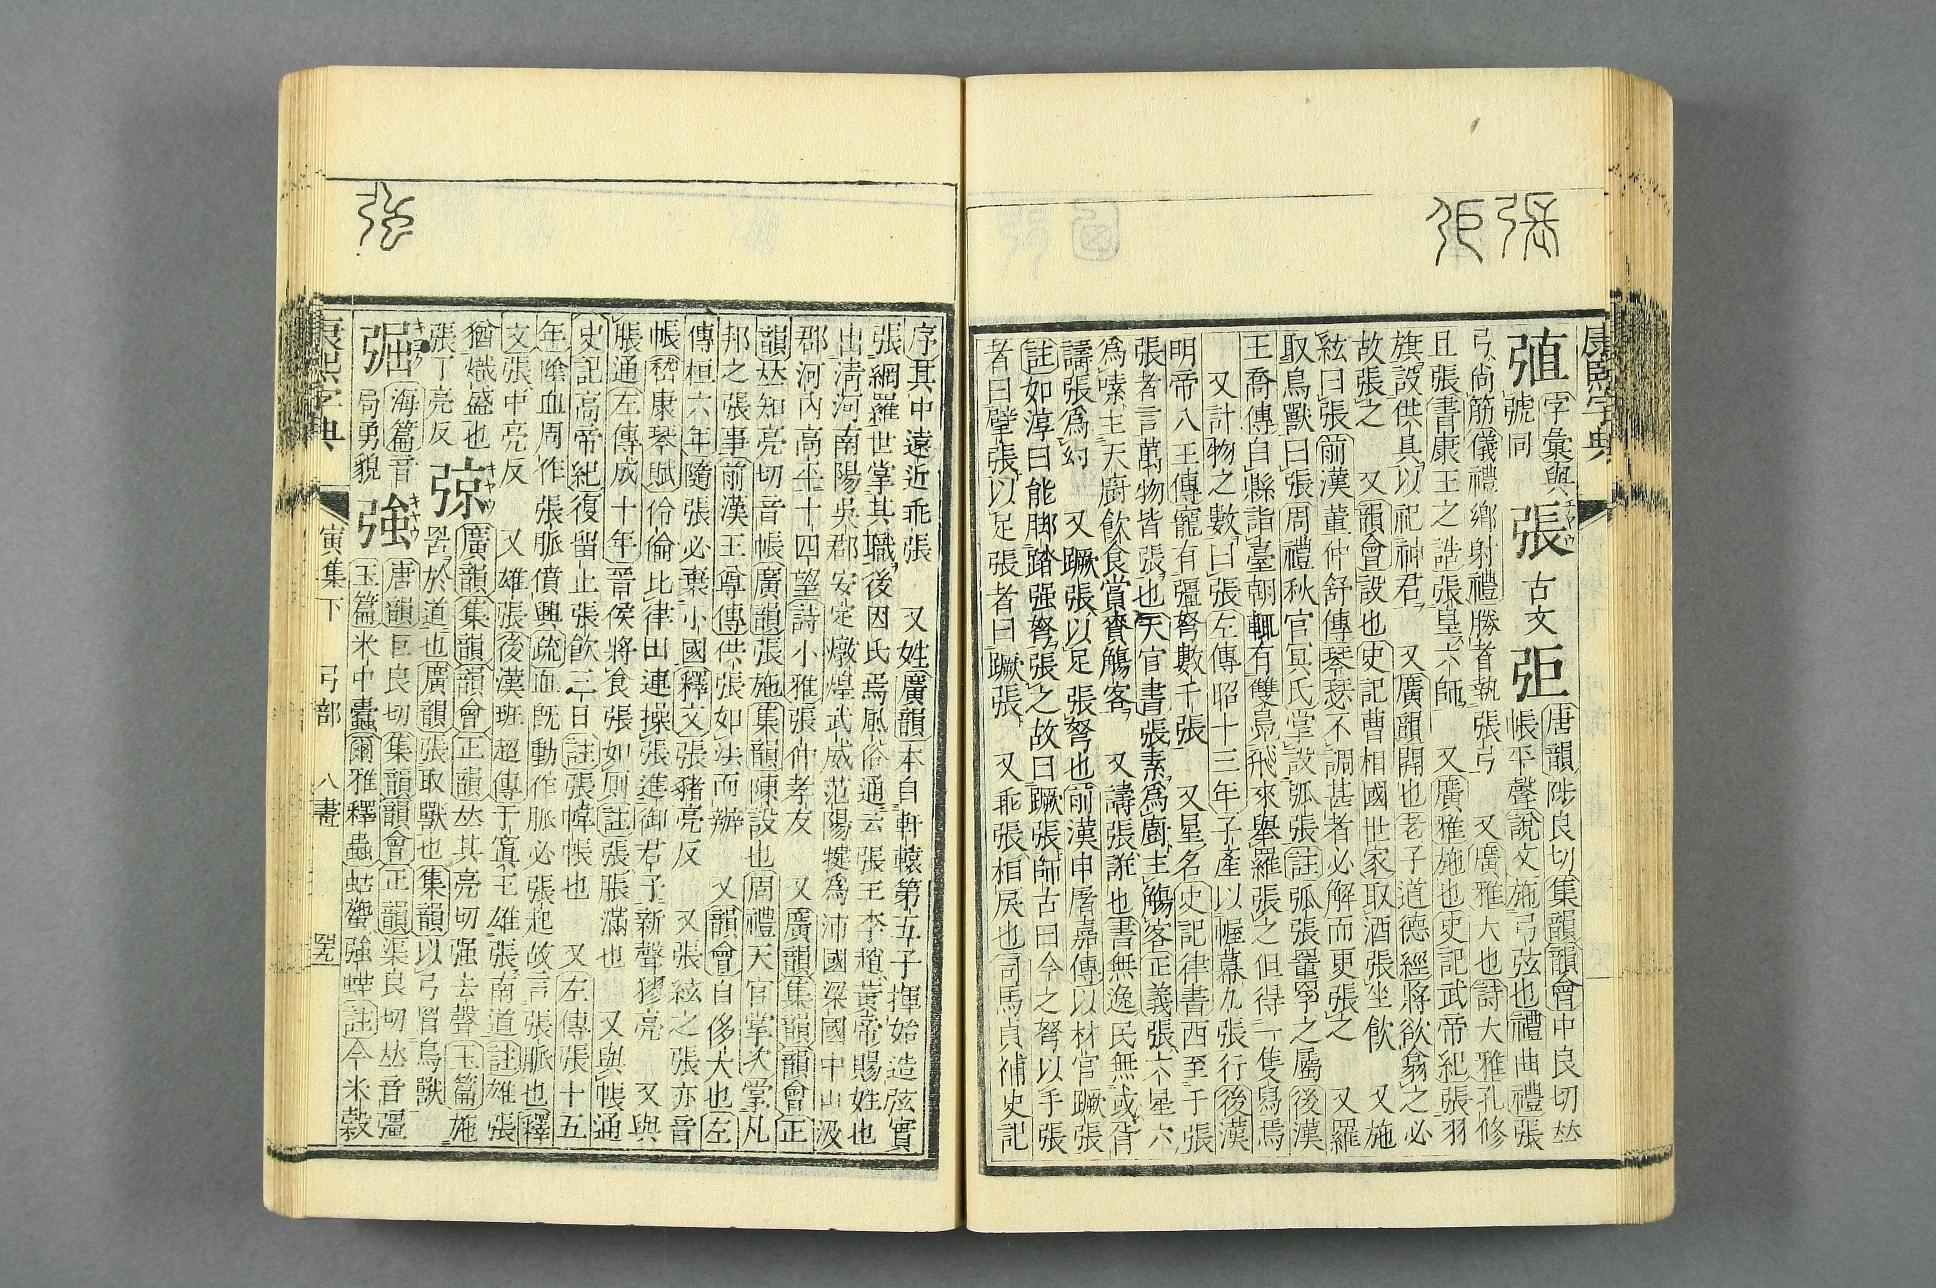 張
字彙與
號同
張
チヤウ
古文
唐韻陟良切集韻韻會中良切𠀤
帳平聲說文施弓弦也禮曲禮張
弓尚筋儀禮鄉射禮勝者執張弓 又廣雅大也詩大雅孔修
且張書康王之誥張皇六師 又廣雅施也史記武帝紀張羽
旗設供具以祀神君 又廣韻開也老子道德經將欲翕之必
故張之 又韻會設也史記曹相國世家取酒張坐飮 又施
絃曰張前漢董仲舒傳琴瑟不調甚者必解而更張之 又羅
取鳥獸曰張周禮秋官冥氏掌設弧張註弧張罿罦之屬後漢
王喬傳自縣詣臺朝輒有雙鳧飛來舉羅張之但得一隻舄焉
又計物之數曰張左傳昭十三年子產以幄幕九張行後漢
明帝八王傳寵有彊弩數千張 又星名史記律書西至于張
張者言萬物皆張也天官書張素爲廚主觴客正義張六星六
爲嗉主天廚飮食賞賚觴客 又譸張誑也書無逸民無或胥
譸張爲幻 又蹶張以足張弩也前漢申屠嘉傳以材官蹶張
註如淳曰能脚踏强弩張之故曰蹶張師古曰今之弩以手張
者曰擘張以足張者曰蹶張 又乖張相戾也司馬貞補史記
序其中遠近乖張 又姓廣韻本自軒轅第五子揮始造弦實
張網羅世掌其職後因氏焉風俗通云張王李趙黃帝賜姓也
出淸河南陽吳郡安定燉煌武威范陽犍爲沛國梁國中山汲
郡河內高平十四望詩小雅張仲孝友 又廣韻集韻韻會正
韻𠀤知亮切音帳廣韻張施集韻陳設也周禮天官掌次掌凡
邦之張事前漢王尊傳供張如法而辦 又韻會自侈大也左
傳桓六年隨張必棄小國釋文張豬亮反 又張絃之張亦音
帳嵆康琴賦伶倫比律田連操張進御君子新聲憀亮 又與
脹通左傳成十年晉侯將食張如厠註張脹滿也 又與帳通
史記高帝紀復留止張飮三日註張幃帳也 又左傳張十五
年陰血周作張脈僨興疏血旣動作脈必張起故言張脈也釋
文張中亮反 又雄張後漢班超傳于窴王雄張南道註雄張
猶熾盛也
張丁亮反
弶
キヤウ
廣韻集韻韻會正韻𠀤其亮切强去聲玉篇施
罟於道也廣韻張取獸也集韻以弓罥鳥獸
海篇音
局勇貌
強
キヤウ
唐韻巨良切集韻韻會正韻渠良切𠀤音彊
玉篇米中蠹爾雅釋蟲蛄䗐強蝆註今米穀
康熙字典 寅集下 弓部 八畫